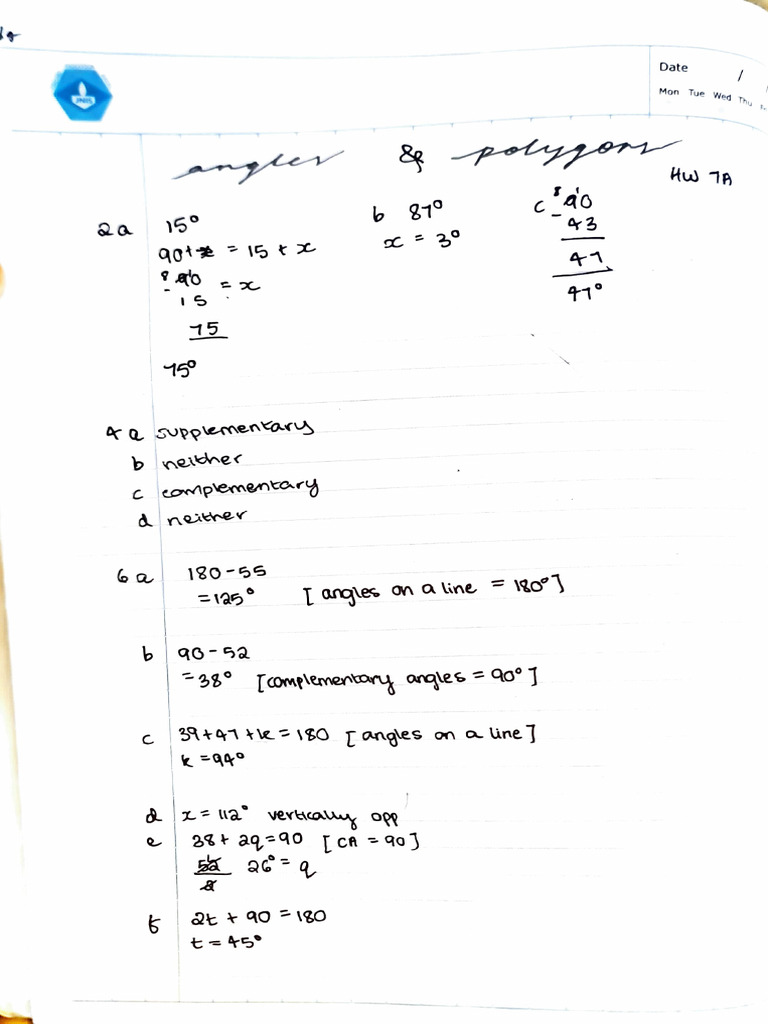 Date /
Mon Tue Wed Thu
JNIS
angles & polygons
HW 7A
2a 15°
90+x = 15 + x
90 - 15 = x
75
75°
b 87°
x = 3°
c 90
- 43
47
47°
4a supplementary
b neither
c complementary
d neither
6a 180-55
=125° [angles on a line = 180°]
b 90-52
=38° [complementary angles = 90°]
c 39+47+k=180 [angles on a line]
k=94°
d x=112° vertically opp
e 38+2q=90 [CA = 90]
52
2
26°=q
f 2t + 90 = 180
t = 45°